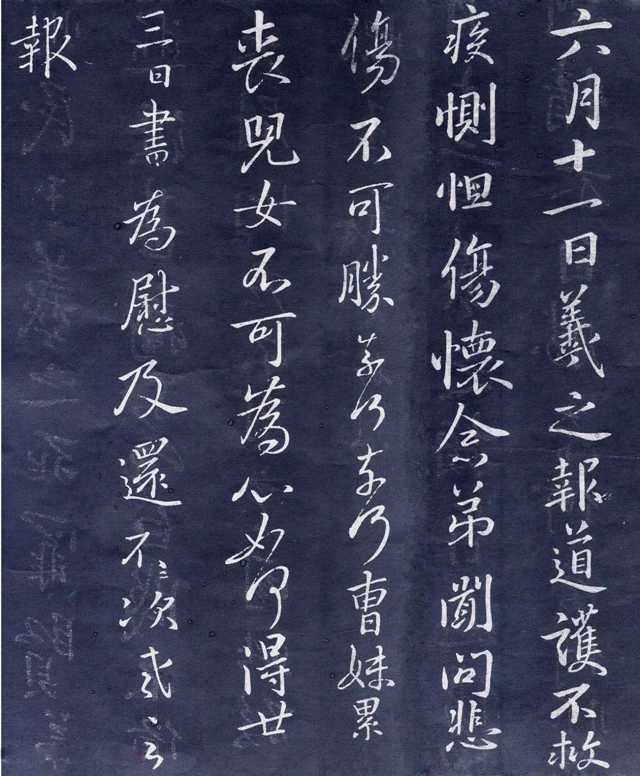 六月十一日羲之報道護不救
疾惻怛傷懷念弟聞問悲
傷不可勝奈何奈何曹妹累
喪兒女不可為心如何得廿
三日書為慰及還不〻次羲之
報